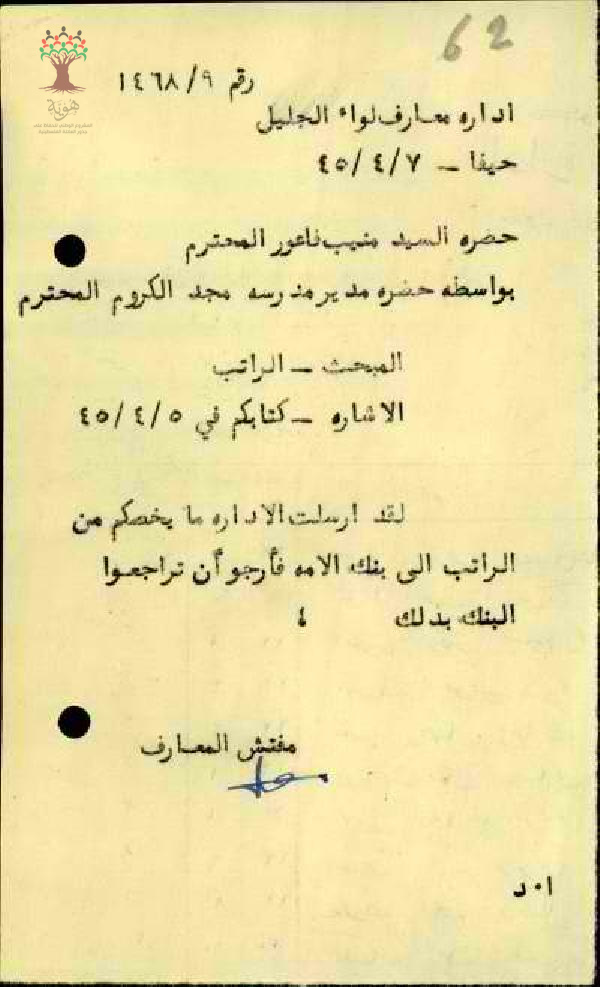 62
رقم ١٤٦٨/٩
هوية
اداره معارف لواء الجليل
حيفا – ٤٥/٤/٧
حضره السيد منيب فاعور المحترم
بواسطه حضره مدير مدرسه مجد الكروم المحترم
المبحث – الراتب
الاشاره – كتابكم في ٤٥/٤/٥
لقد ارسلت الاداره ما يخصكم من
الراتب الى بنك الامه فأرجو أن تراجعوا
البنك بذلك ٤
مفتش المعارف
ا٠د